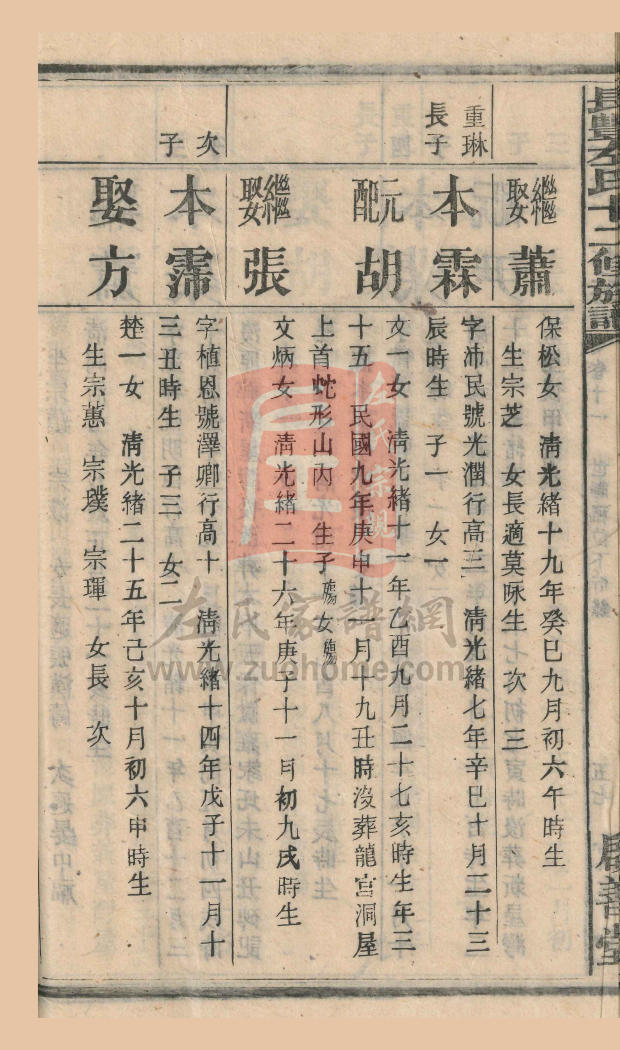 長豐左氏十二修族譜
卷十一
五七
啟善堂
繼娶蕭
保松女 淸光緒十九年癸巳九月初六午時生
生宗芝 女長適莫咏生 次 三
重琳長子
本霖
字沛民號光潤行高三 淸光緒七年辛巳十月二十三
辰時生 子一 女一
元配胡
文一女 淸光緒十一年乙酉九月二十七亥時生年三
十五 民國九年庚申十一月十九丑時沒葬龍宫洞屋
上首蛇形山內 生子殤女殤
繼娶張
文炳女 淸光緒二十六年庚子十一月初九戌時生
次子
本霈
字植恩號澤卿行高十 淸光緒十四年戊子十一月十
三丑時生 子三 女二
娶方
楚一女 淸光緒二十五年己亥十月初六申時生
生宗蕙 宗璞 宗琿 女長 次
左氏家譜網
www.zuohome.com